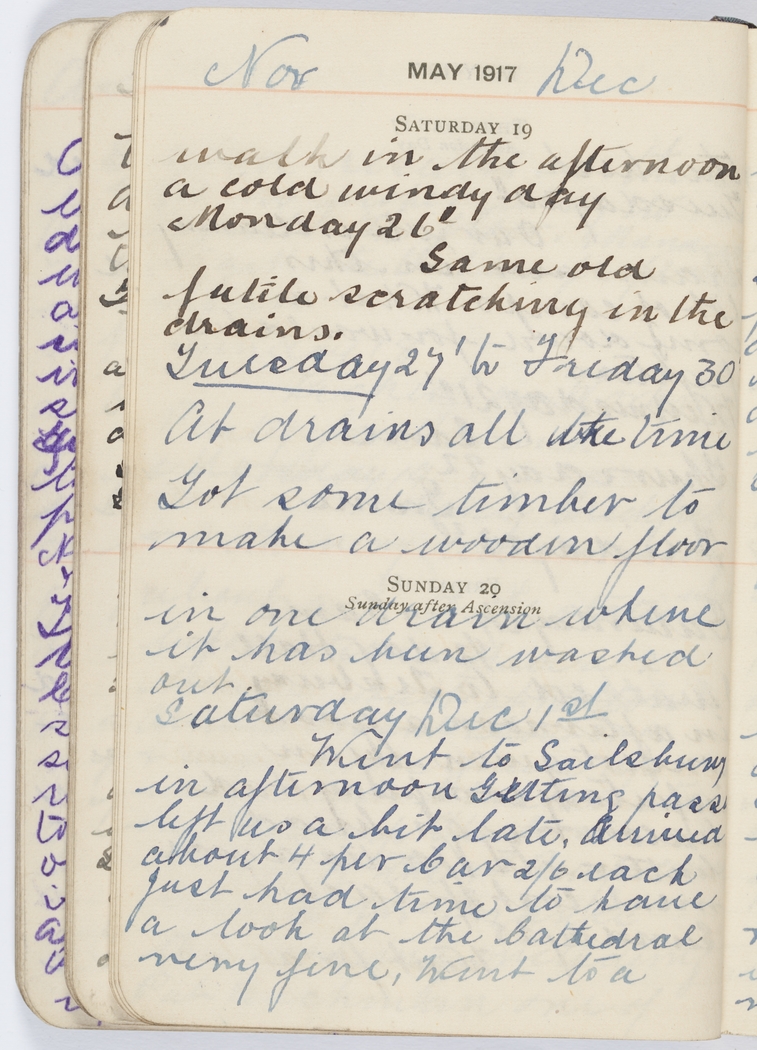 Nov MAY 1917 Dec
SATURDAY 19
walk in the afternoon
a cold windy day
Monday 26"
Same old
futile scratching in the
drains.
Tuesday 27' to Friday 30'
At drains all the time
Got some timber to
make a wooden floor
SUNDAY 20
Sunday after Ascension
in one drain where
it has been washed
out.
Saturday Dec 1st
Went to Sailsbury
in afternoon Getting pass
left us a bit late, Arrived
about 4 per Car 2/6 each
Just had time to have
a look at the Cathedral
very fine, Went to a